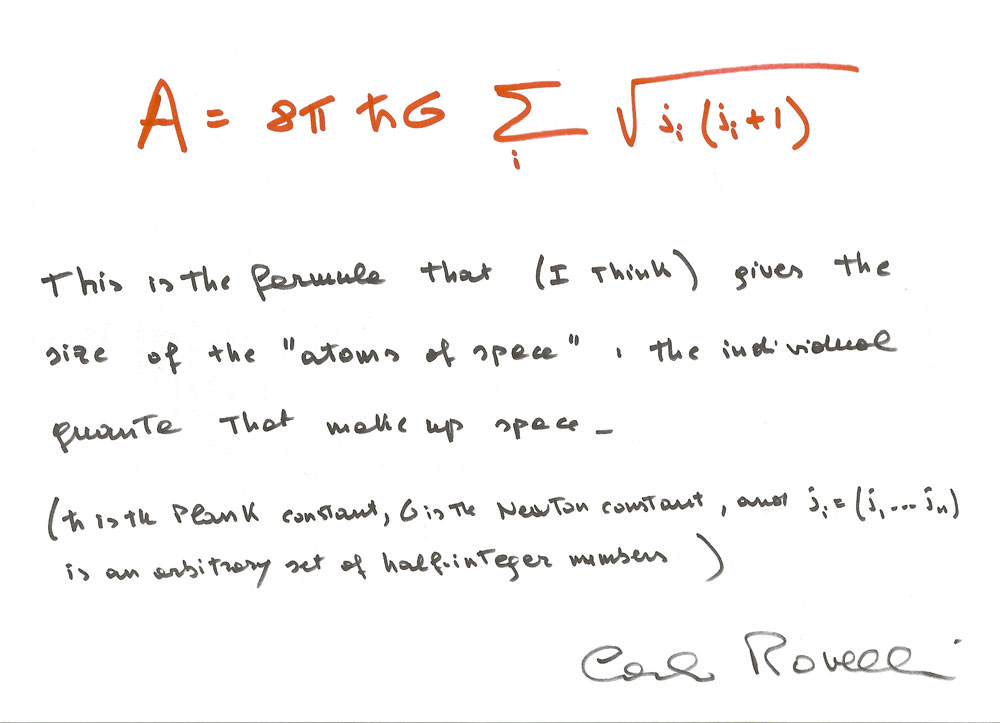 A = 8π ħG ∑i √ji (ji+1)
This is the formula that (I think) gives the
size of the "atoms of space", the individual
quanta that make up space_
(ħ is the Plank constant, G is the Newton constant, and ji=(j1...jn)
is an arbitrary set of half-integer numbers)
Carlo Rovelli